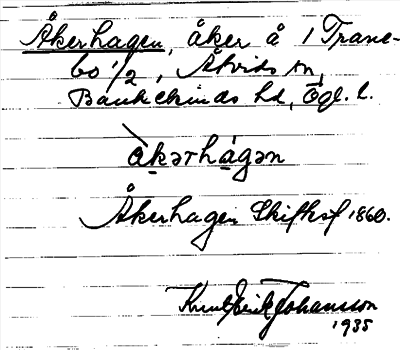 Åkerhagen, åker å 1 Trane-
bo 1/2, Åtvids sn,
Bankekinds hd, Ögl. l.
åkərhágən
Åkerhagen Skifksf 1860.
Knut Erik Johansson
1935